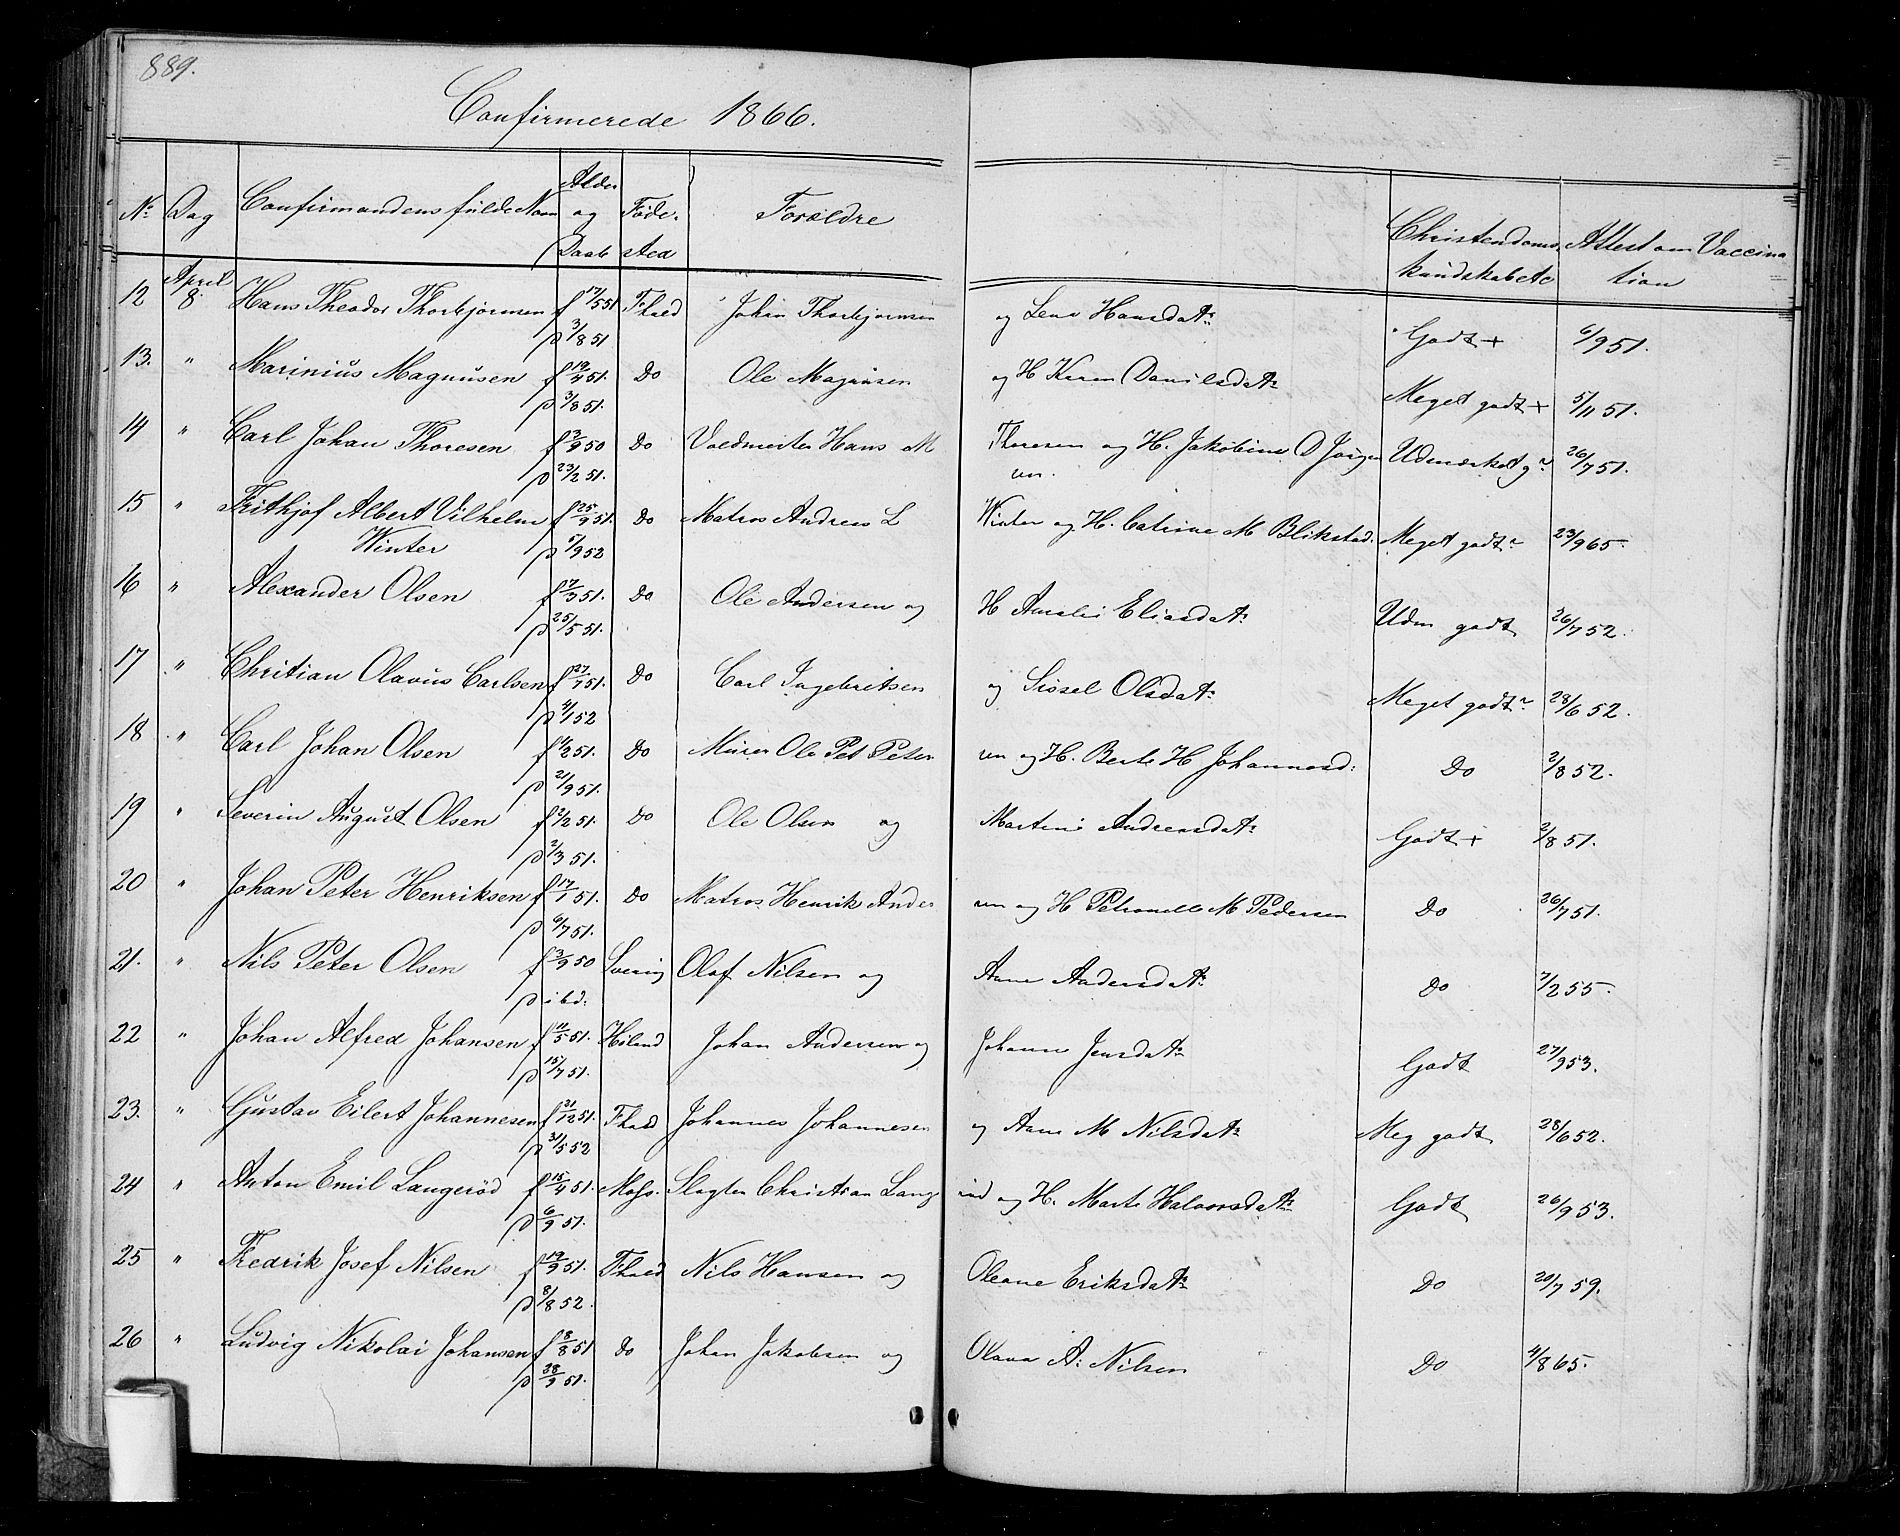 889.
Confirmerede 1866.
No Dag Confirmandens fulde Navn Alder og Daab Føde-sted Forældre Christendoms kundskabete Attest om Vaccination
12 April 8. Hans Theodor Thorbjørnsen f 17/5 51 Fhald Johan Thorbjørnsen og Lene Hansdatr Godt + 6/9 51.
p 3/8 51
13. " Marinius Magnusen f 19/4 51. Do Ole Magnusen og H Karen Danilsdatr Meget godt + 5/11 51.
p 3/8 51.
14 " Carl Johan Thoresen f 3/9 50 Do Voldmester Hans M Thoresen og H. Jakobine D Jørgensen. Udmærket g 26/7 51.
p 23/2 51.
15 " Frithjof Albert Vilhelm f 25/9 51. Do Matros Andreas L Winter og H. Catrine M Blikstad. Meget godt 23/9 65.
Winter p 5/9 52
16 " Alexander Olsen f 7/3 51. Do Ole Andersen og H Amalie Eliasdatr Udm godt 26/7 52.
p 25/5 51.
17 " Chritian Olavus Carlsen f 27/7 51. Do Carl Ingebritsen og Sissel Olsdatr Meget godt 28/6 52.
p 4/1 52
18 " Carl Johan Olsen f 1/2 51. Do Murer Ole Pet Petersen og H. Berte H Johannesd: Do 2/8 52.
p 21/9 51.
19 " Severin August Olsen f 2/2 51. Do Ole Olsen og Martine Andreasdatr Godt + 2/8 51.
p 2/3 51.
20 " Johan Peter Henriksen f 17/1 51. Do Matros Henrik Andersen og H Petronelle M Pedersen Do 26/7 51.
p 6/7 51.
21. " Nils Peter Olsen f 3/9 50 Sverig Olaf Nilsen og Anne Andersdatr Do 7/2 55.
p ibd:
22 " Johan Alfred Johansen f 11/5 51. Høland Johan Andersen og Johanne Jensdatr Godt 27/9 53.
p 15/7 51.
23. " Gustav Eilert Johannesen f 21/12 51. Fhald Johannes Johannesen og Anne M Nilsdatr Meg godt 28/6 52.
p 31/5 52
24 " Anton Emil Langerød f 15/4 51. Moss. Slagter Christian Langerød og H. Marte Halvorsdatr Godt 26/9 53.
p 6/9 51.
25 " Fredrik Josef Nilsen f 19/9 51. Fhald Nils Hansen og Oleane Eriksdatr Do 20/7 59.
p 8/8 52.
26 " Ludvig Nikolai Johansen f 8/8 51 Do Johan Jakobsen og Olava A: Nilsen Do 4/8 65.
p 28/9 51.